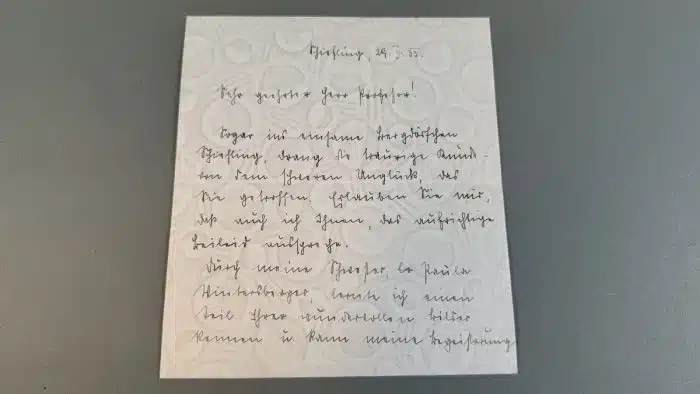 Schiefling, 29. 33.
Sehr geehrter Herr Professor!
Sogar ins einsame Bergdörfchen
Schiefling, drang die traurige Kunde
von dem schweren Unglück, das
Sie getroffen. Erlauben Sie mir,
daß auch ich Ihnen, das aufrichtige
Beileid ausspreche.
Durch meine Schwester, Paula
Wintersberger, lernte ich einen
Teil Ihrer wundervollen Bilder
kennen u. kann meine Begeisterung